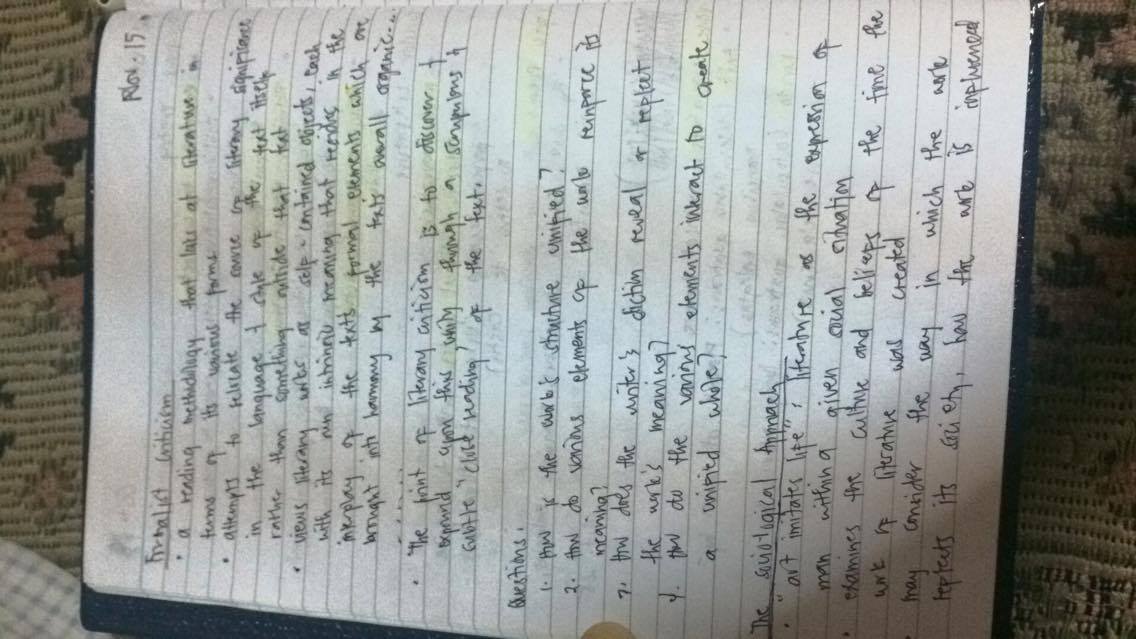 Nov. 15.
Formalist Criticism
• a reading methodology that looks at literature in
terms of its various forms
• attempts to relocate the source of literary significance
in the language & style of the text itself
rather than something outside that text
• views literary works as self-contained objects, each
with its own intrinsic meaning that resides in the
interplay of the text's formal elements which are
brought into harmony by the text's overall organic...
......
• The point of literary criticism is to discover &
expound upon this unity through a scrupulous &
subtle "close reading" of the text.
Questions:
1. How is the work's structure unified?
2. How do various elements of the work reinforce its
meaning?
3. How does the writer's diction reveal or reflect
the work's meaning?
4. How do the various elements interact to create
a unified whole?
The Sociological Approach
• "art imitates life"; literature as the expression of
man within a given social situation
• examines the culture and beliefs of the time the
work of literature was created
• may consider the way in which the work
reflects its society, how the work is influenced